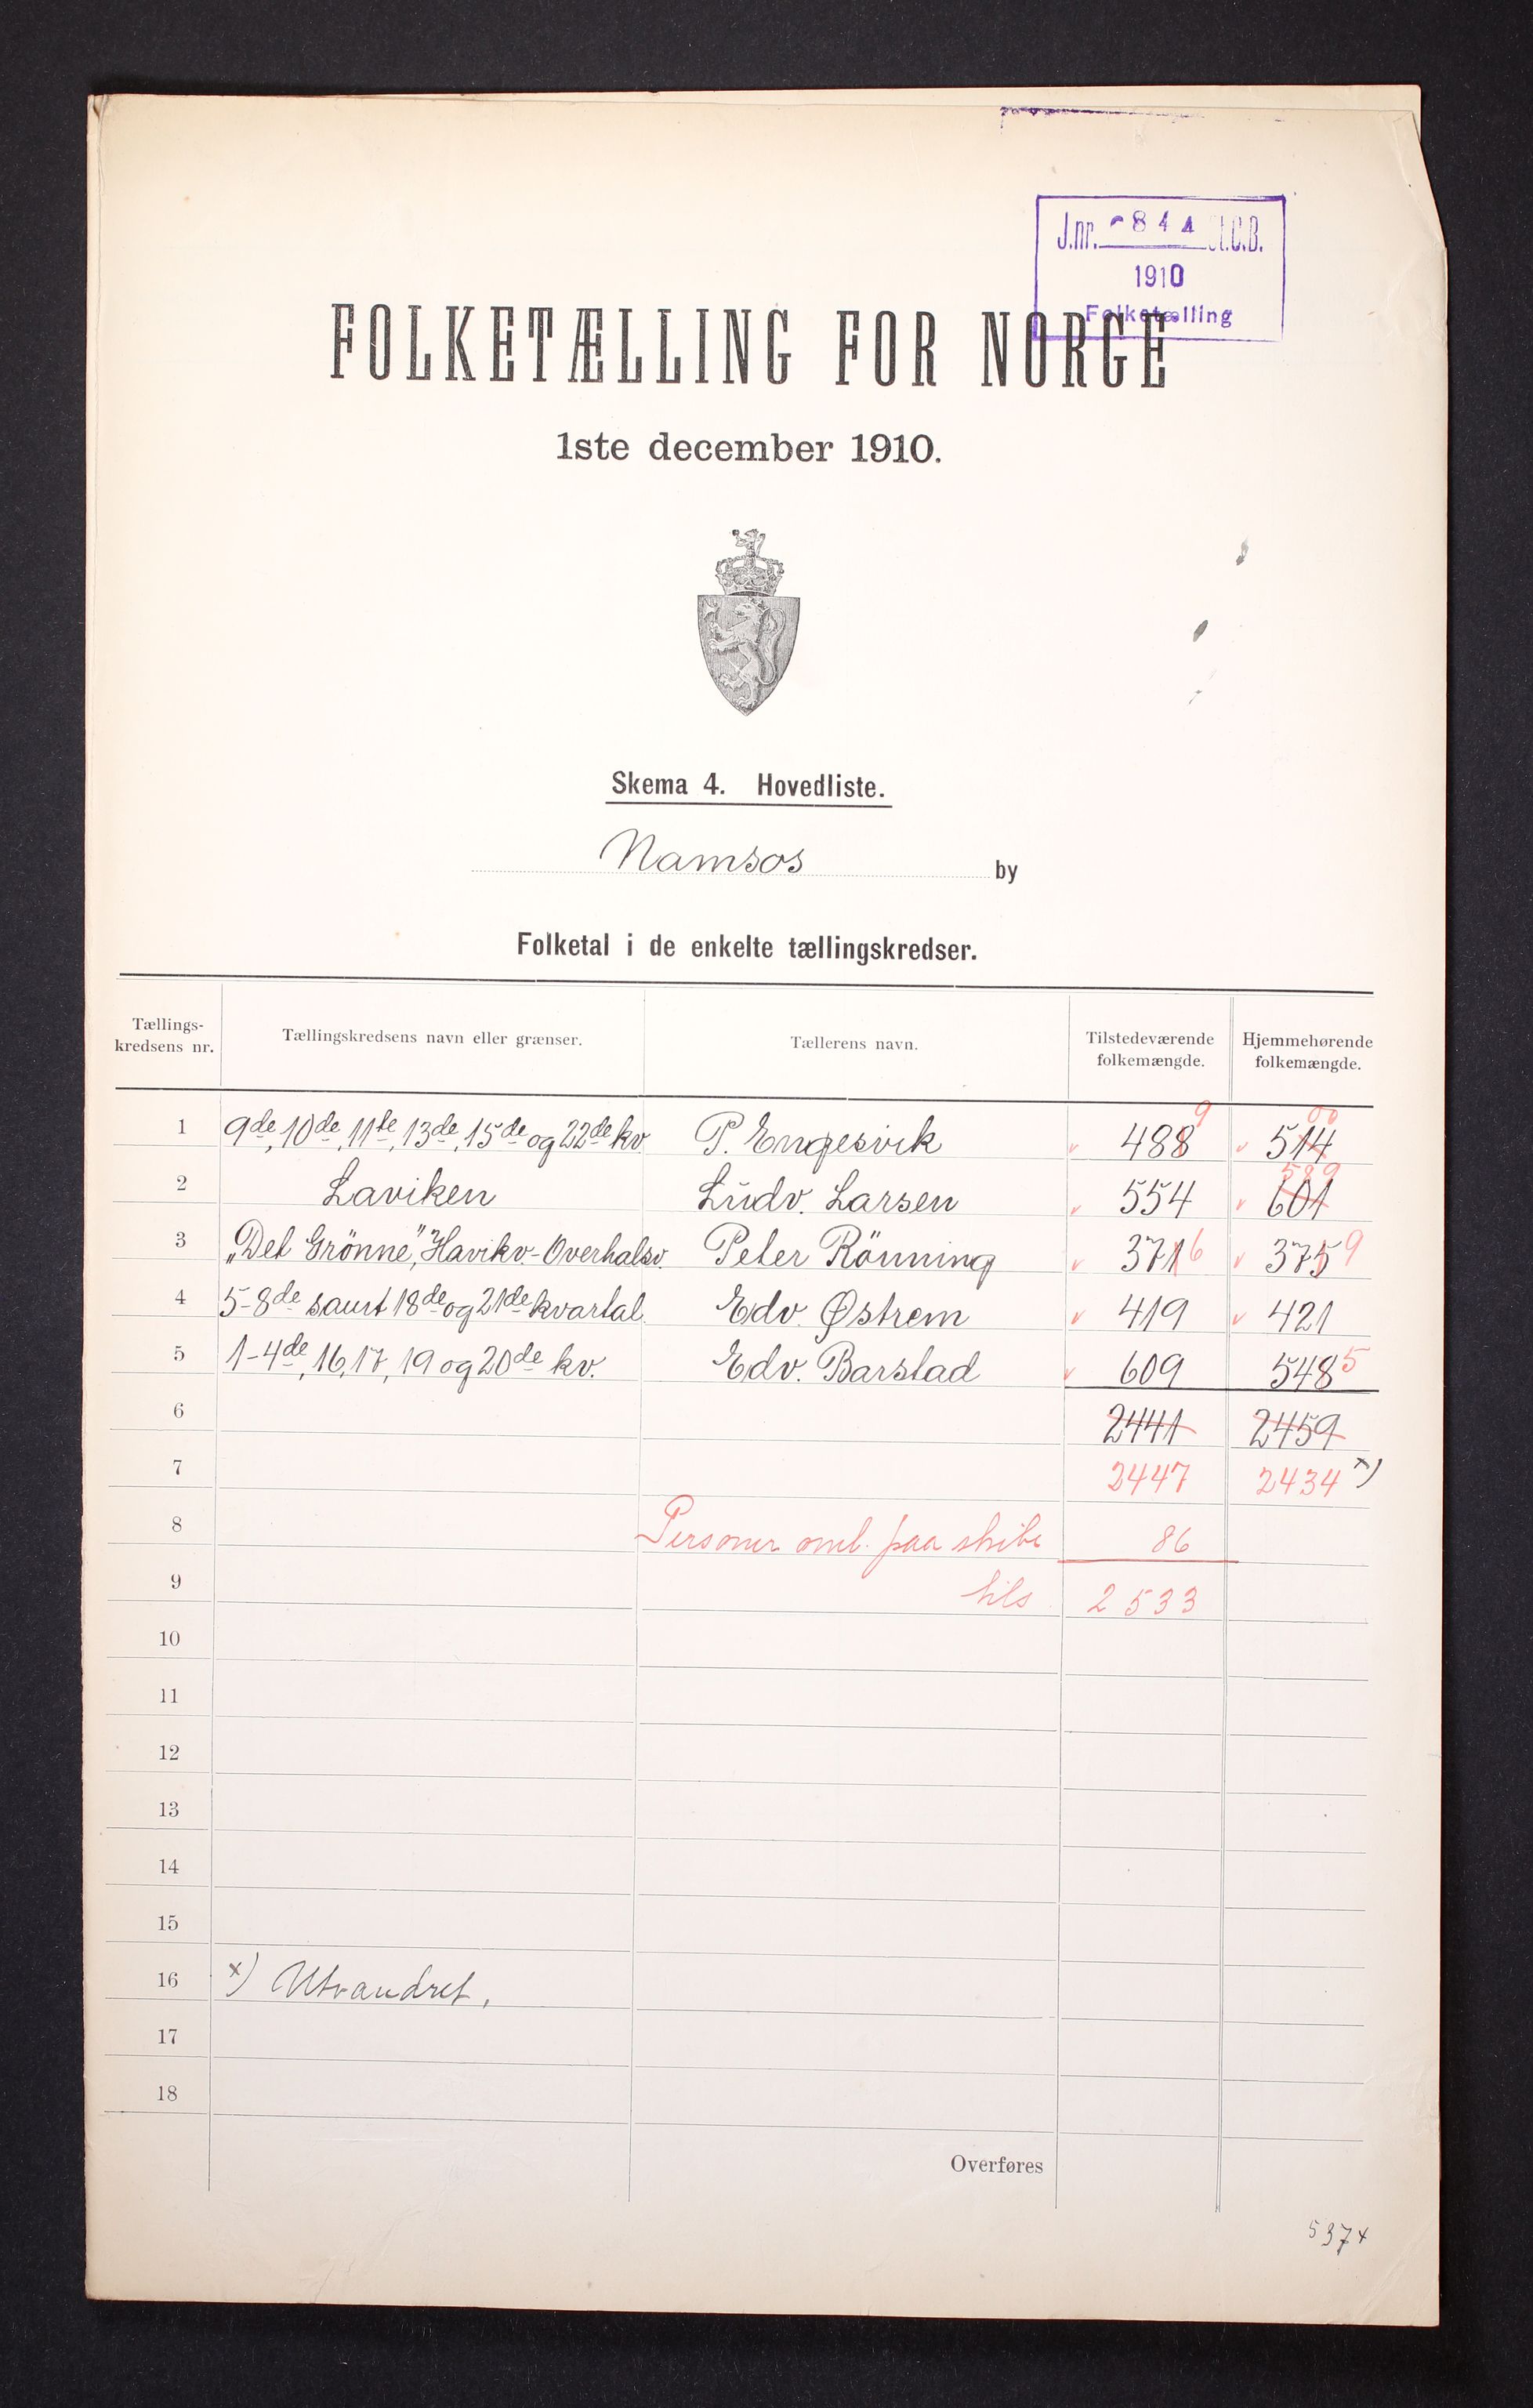 J.nr. 844 St.C.B.
1910
Folketælling
FOLKETÆLLING FOR NORGE
1ste december 1910.
Skema 4. Hovedliste.
Namsos by
Folketal i de enkelte tællingskredser.
Tællings-kredsens nr. Tællingskredsens navn eller grænser. Tællerens navn. Tilstedeværende folkemængde. Hjemmehørende folkemængde.
1 9de, 10de, 11te, 13de, 15de og 22de kv. P. Engesvik 488 9 514 00
2 Laviken Ludv. Larsen 554 601 589
3 „Det Grönne", Havikv.-Overhalsv. Peter Rönning 371 6 375 9
4 5-8de samt 18de og 21de kvartal. Edv. Østrem 419 421
5 1-4de, 16, 17, 19 og 20de kv. Edv. Barstad 609 548 5
6 2441 2459
7 2447 2434 x)
8 Personer omb. paa skibe 86
9 tils. 2533
10
11
12
13
14
15
16 x) Utvandret.
17
18
Overføres
537x